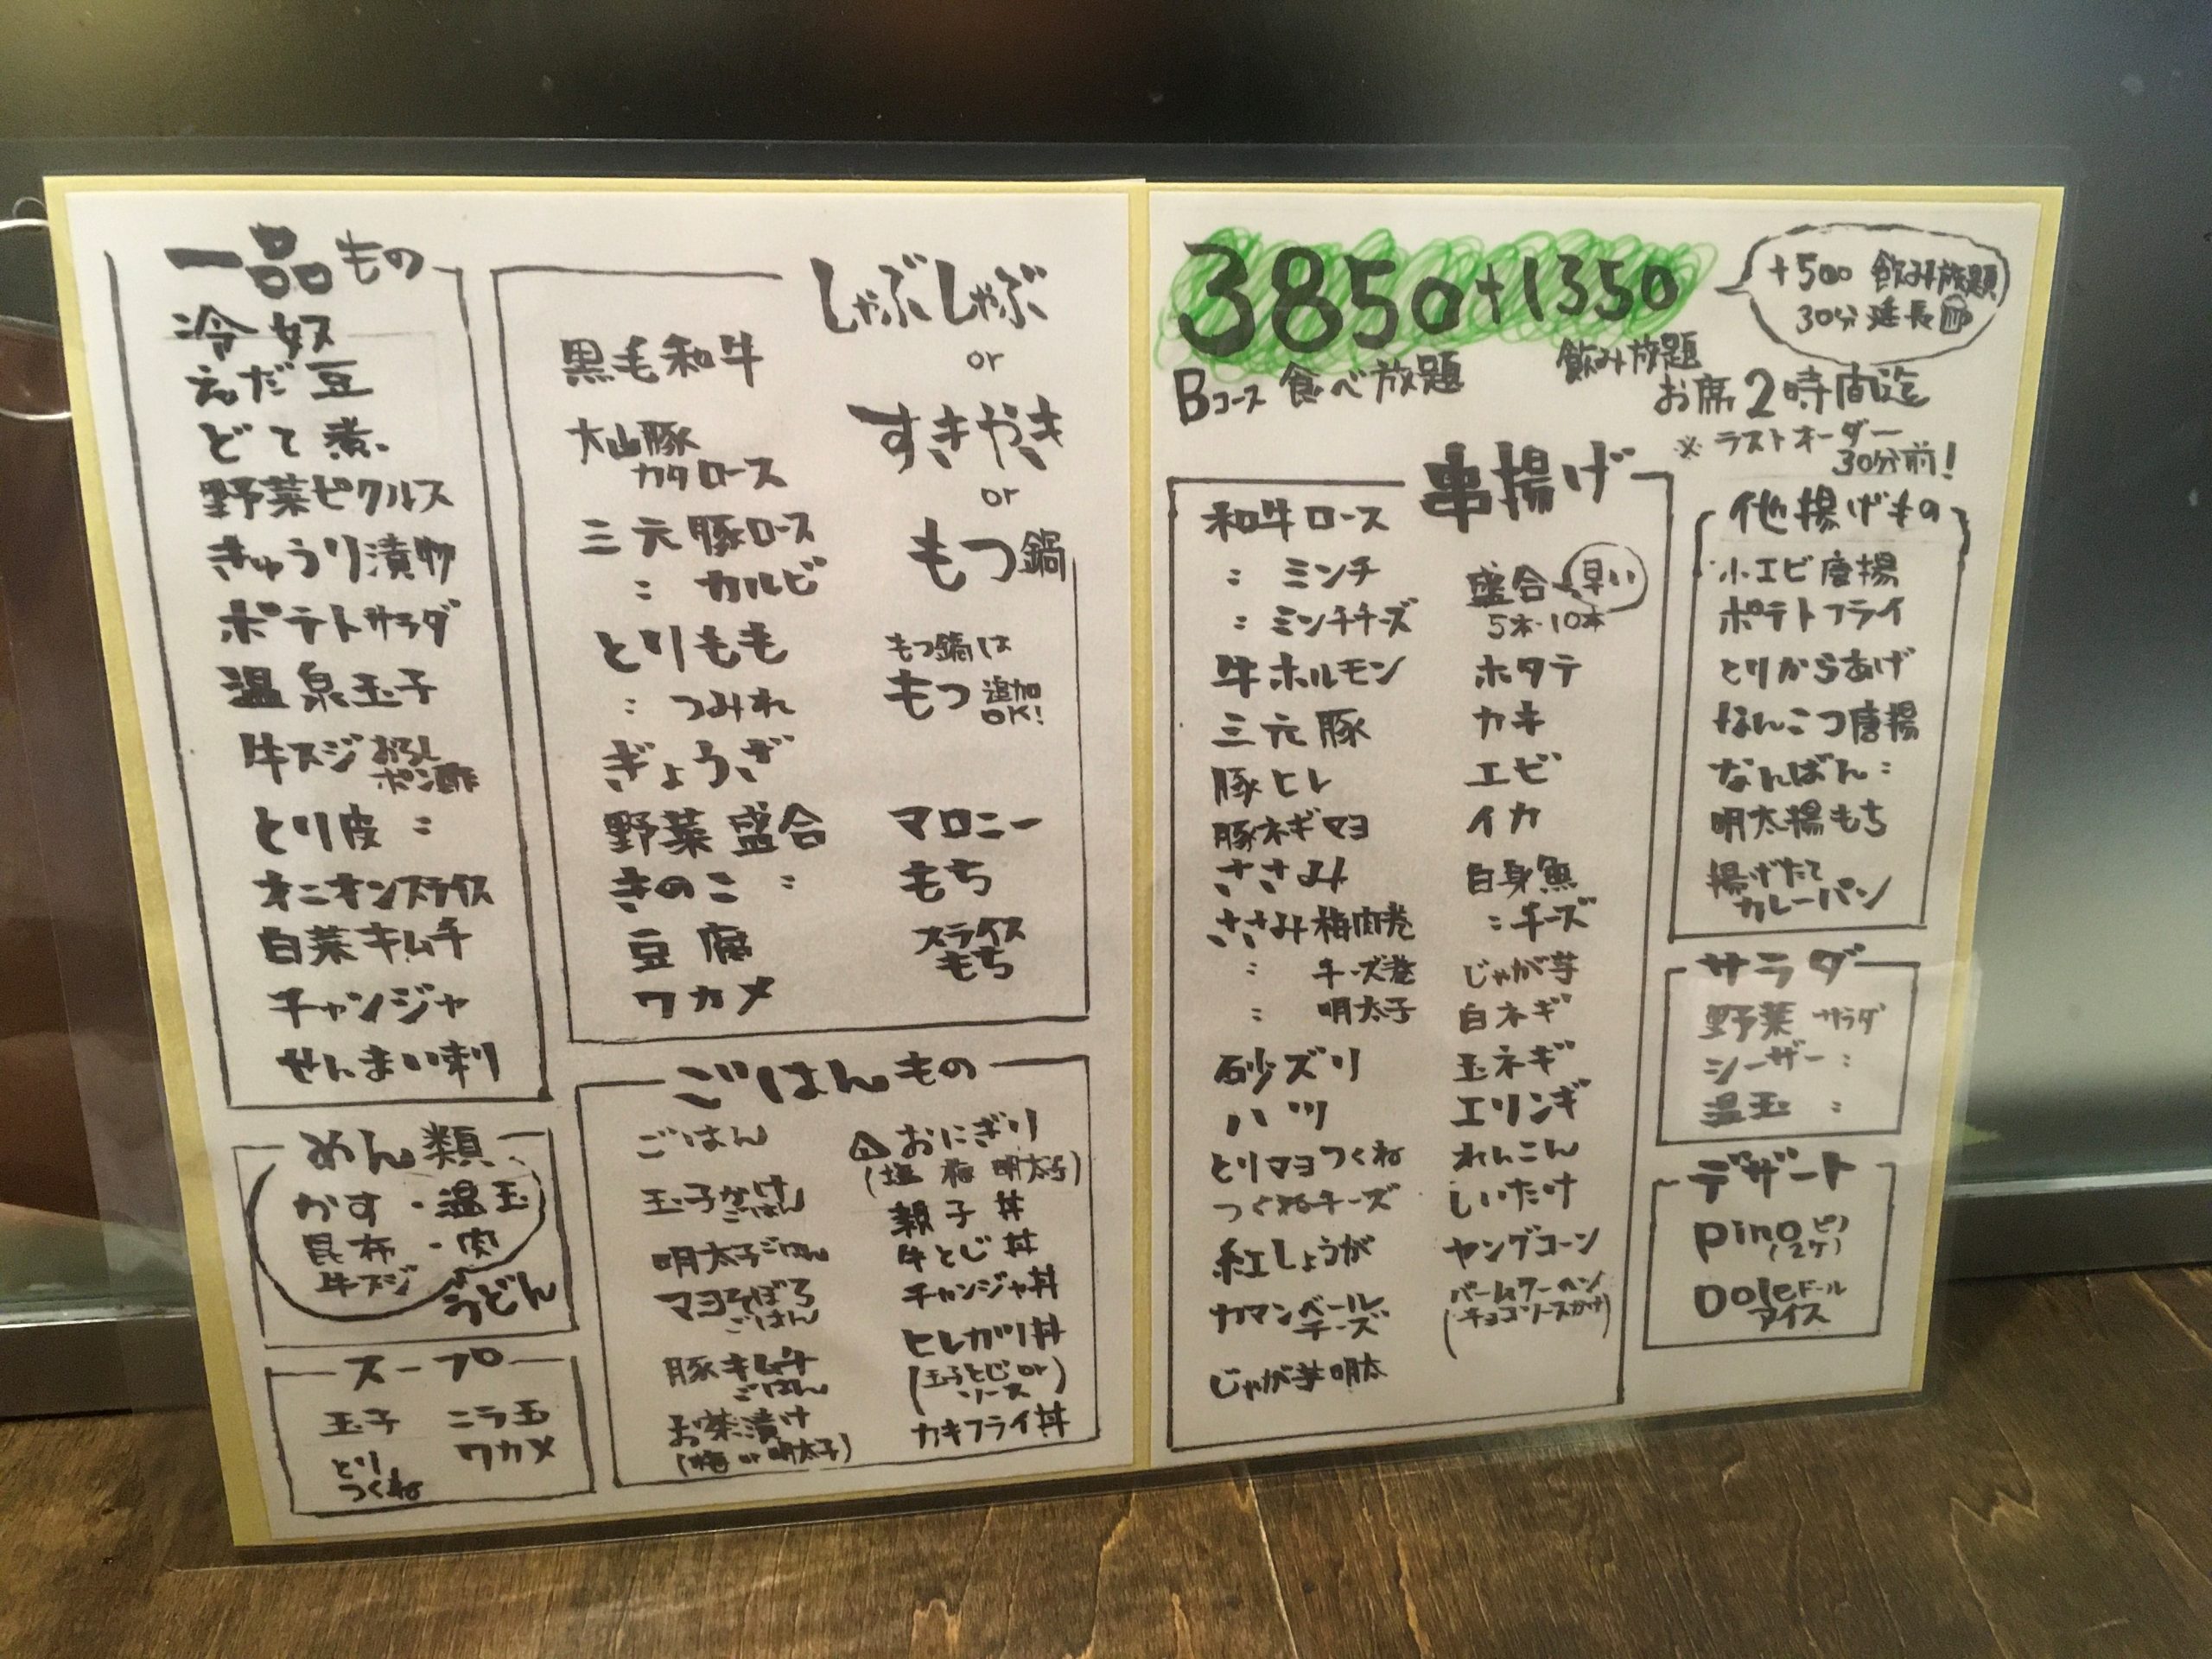 一品もの
冷奴
えだ豆
どて煮
野菜ピクルス
きゅうり漬物
ポテトサラダ
温泉玉子
牛スジおろしポン酢
とり皮 〃
オニオンスライス
白菜キムチ
チャンジャ
せんまい刺
めん類
かす・温玉
昆布・肉
牛スジ
うどん
スープ
玉子
ニラ玉
とりつくね
ワカメ
しゃぶしゃぶ
or
すきやき
or
もつ鍋
もつ鍋は
もつ追加OK!
黒毛和牛
大山豚
カタロース
三元豚ロース
〃 カルビ
とりもも
〃 つみれ
ぎょうざ
野菜盛合
きのこ 〃
豆腐
ワカメ
マロニー
もち
スライス
もち
ごはんもの
ごはん
玉子かけごはん
明太子ごはん
マヨそぼろごはん
豚キムチごはん
お茶漬け
(梅or明太子)
おにぎり
(塩 梅 明太子)
親子丼
牛とじ丼
チャンジャ丼
ヒレカツ丼
(玉子とじorソース)
カキフライ丼
3850+1350
Bコース 食べ放題
飲み放題
+500 飲み放題
30分延長
お席2時間迄
※ラストオーダー
30分前!
串揚げ
和牛ロース
〃 ミンチ
〃 ミンチチーズ
牛ホルモン
三元豚
豚ヒレ
豚ネギマヨ
ささみ
ささみ梅肉巻
〃 チーズ巻
〃 明太子
砂ズリ
ハツ
とりマヨつくね
つくねチーズ
紅しょうが
カマンベール
チーズ
じゃが芋明太
盛合 早い
5本・10本
ホタテ
カキ
エビ
イカ
白身魚
〃チーズ
じゃが芋
白ネギ
玉ネギ
エリンギ
れんこん
しいたけ
ヤングコーン
バームクーヘン
(チョコソースかけ)
他揚げもの
小エビ唐揚
ポテトフライ
とりからあげ
なんこつ唐揚
なんばん〃
明太揚もち
揚げたて
カレーパン
サラダ
野菜サラダ
シーザー〃
温玉 〃
デザート
pinoピノ
(2ケ)
Doleドール
アイス